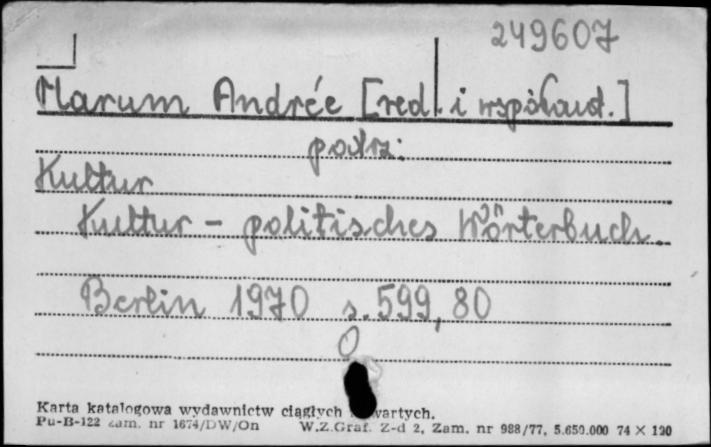 249607
Marum Andrée [red. i współaut.]
patrz:
Kultur
Kultur - politisches Wörterbuch.
Berlin 1970 s. 599, 80
Karta katalogowa wydawnictw ciągłych wartych.
Pu-B-122 zam. nr 1674/DW/On W.Z.Graf. Z-d 2, Zam. nr 988/77, 5.650.000 74 X 120